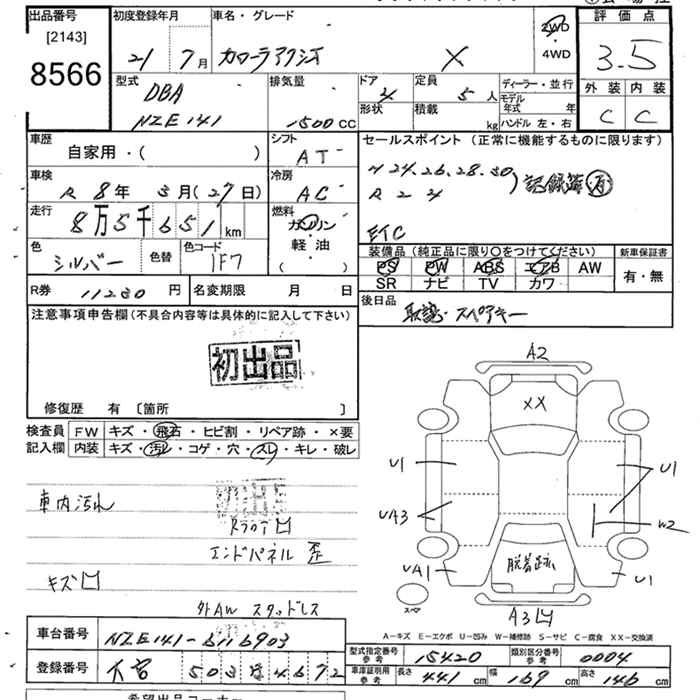 出品番号 初度登録年月 車名・グレード 2WD 評価点
[2143]
8566 21 7月 カローラアクシオ X ・4WD 3.5
型式 排気量 ドア 定員 ディーラー・並行 外装 内装
DBA 4 5人 モデル年式 年 C C
NZE141 1500CC 形状 積載 kg ハンドル 左・右
車歴 シフト セールスポイント (正常に機能するものに限ります)
自家用・( ) AT
H24.26.28.30 R2 4 )記録簿(有)
車検 冷房
R 8年 3月(27日) AC
走行 燃料
8万5千651km ガソリン・軽油( )
ETC
色 シルバー 色替 色コード 1F7
装備品 (純正品に限り○をつけてください) 新車保証書
PS PW ABS エアB AW 有・無
SR ナビ TV カワ
R券 11280円 名変期限 月 日
後日品 取説・スペアキー
注意事項申告欄(不具合内容等は具体的に記入して下さい)
初出品
修復歴 有 〔箇所 〕
検査員 FW キズ・飛石・ヒビ割・リペア跡・×要
記入欄 内装 キズ・汚レ・コゲ・穴・スレ・キレ・破レ
車内汚れ
初出品
エンドパネル 歪
キズ凹
外AW スタッドレス
A2
XX
U1 U1
UA3 W2
UA1 U1
脱着跡
スペア
A3凹
A-キズ E-エクボ U-凹み W-補修跡 S-サビ C-腐食 XX-交換済
車台番号 NZE141-6116903
登録番号 503 4672
型式指定番号 参考 15420 類別区分番号 参考 0004
車庫証明用 参考 長さ 441cm 幅 169cm 高さ 146cm
希望出品コーナー